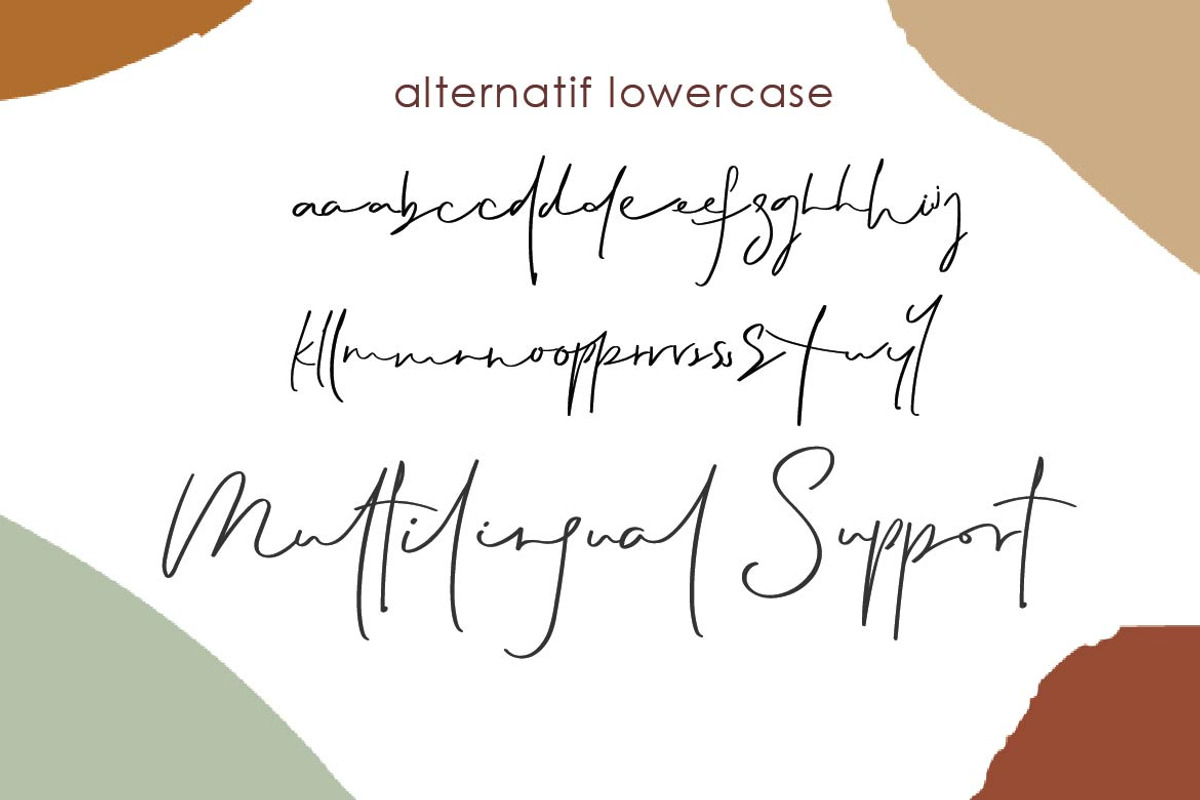 alternatif lowercase
aaabccdddeeefzghhhiijj
klllmmmnnooopprrrrsssstwyy
Multilingual Support